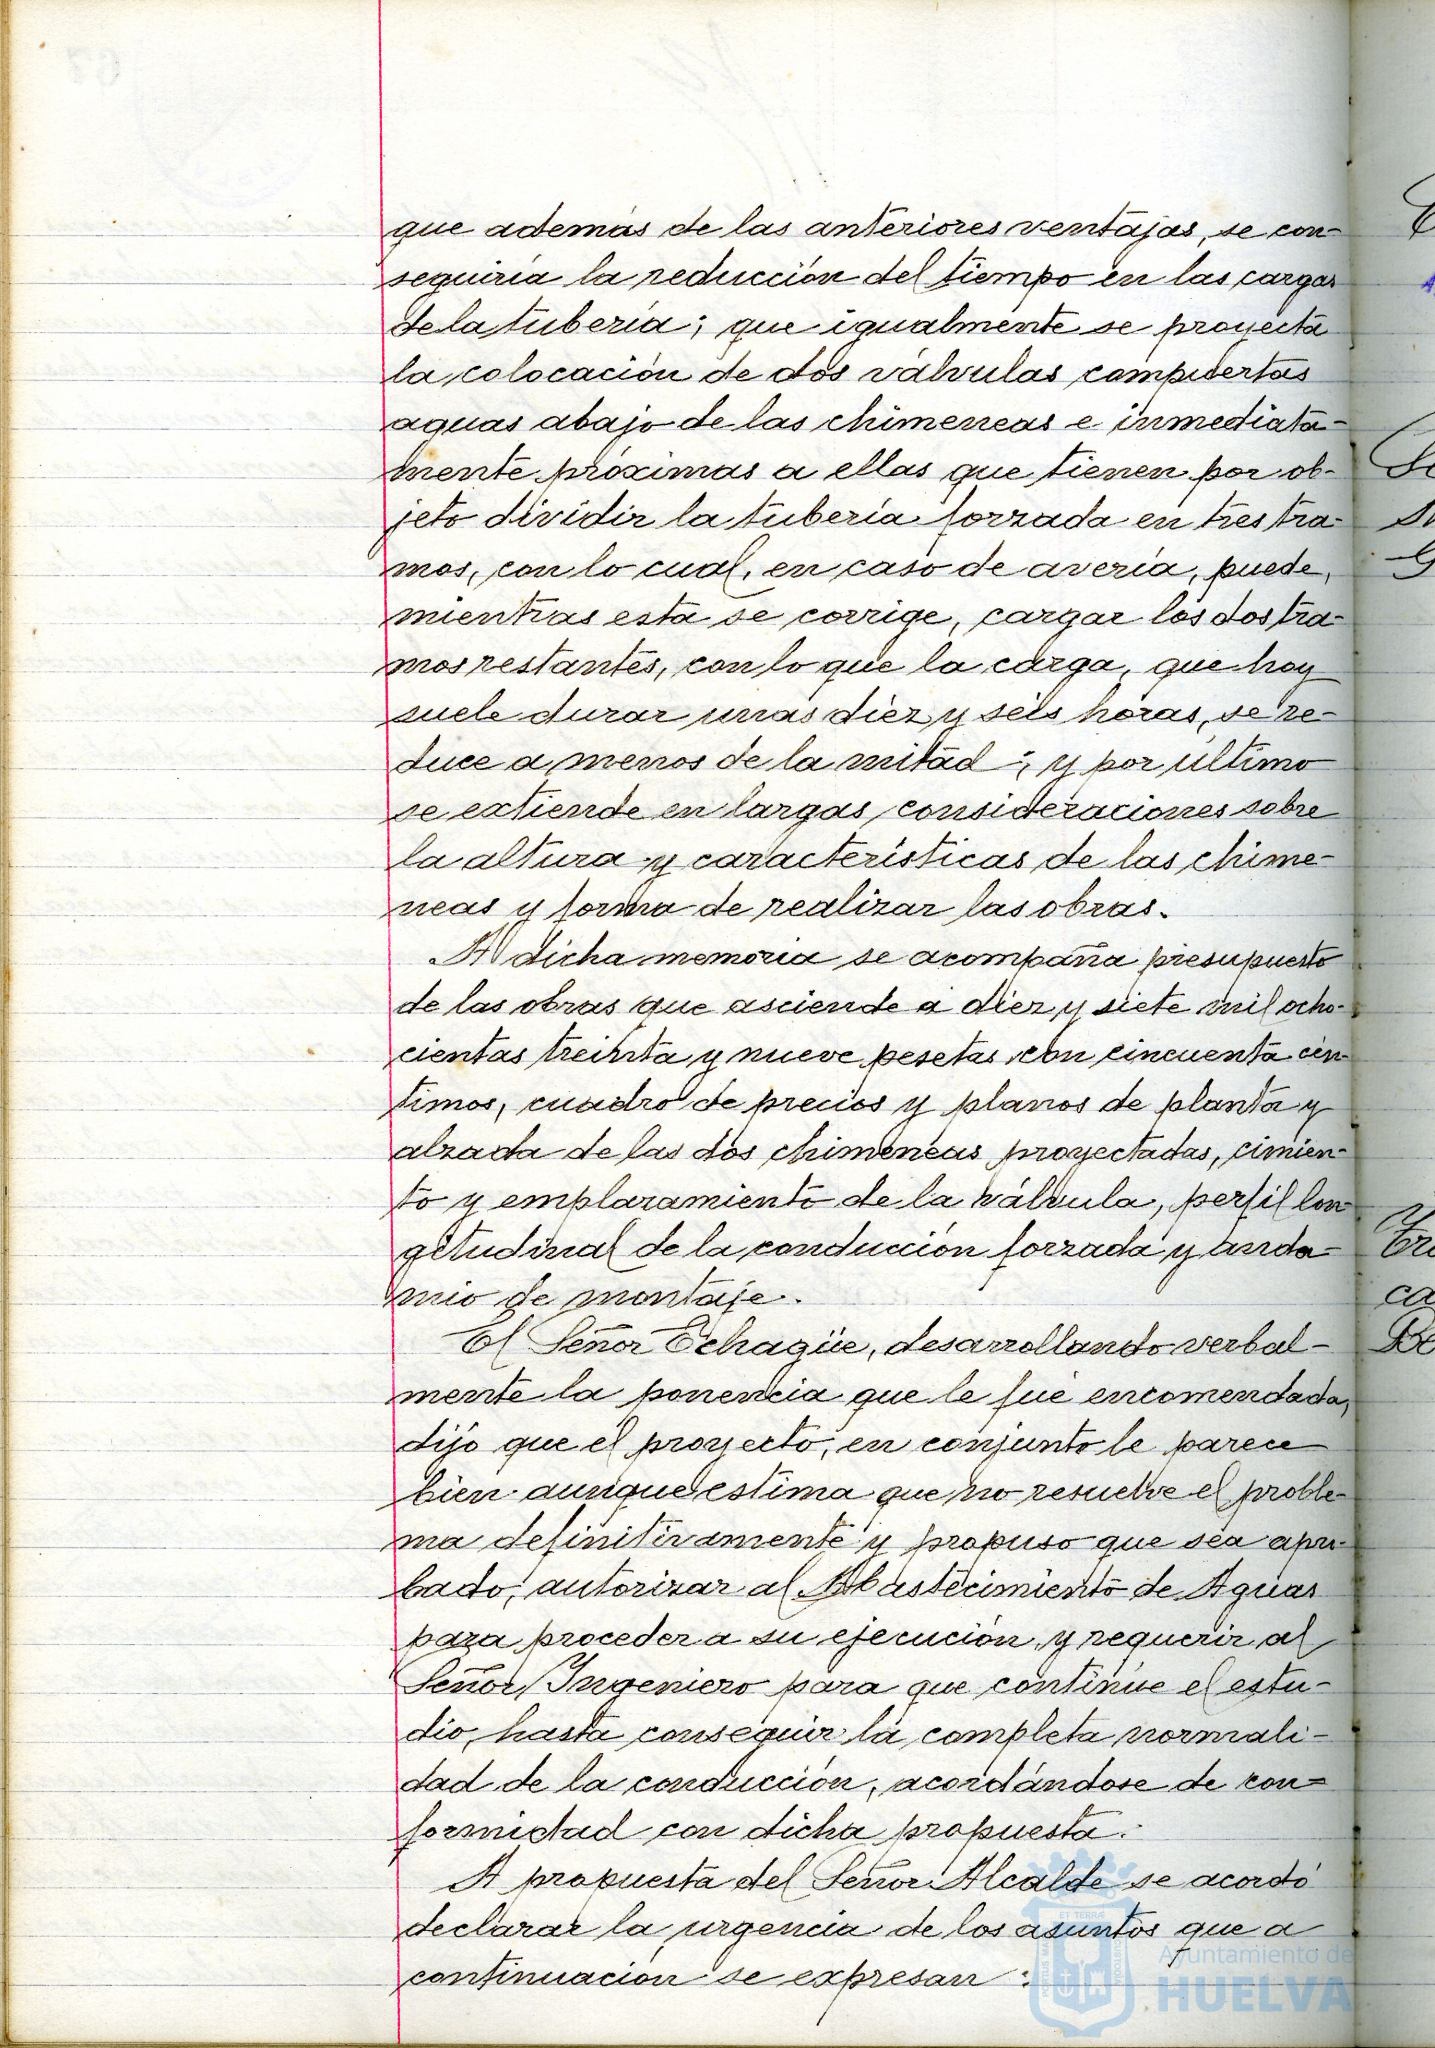 que además de las anteriores ventajas, se con-
seguiría la reducción del tiempo en las cargas
de la tubería; que igualmente se proyecta
la colocación de dos válvulas compuertas
aguas abajo de las chimeneas e inmediata-
mente próximas a ellas que tienen por ob-
jeto dividir la tubería forzada en tres tra-
mos, con lo cual, en caso de avería, puede,
mientras esta se corrige, cargar los dos tra-
mos restantes, con lo que la carga, que hoy
suele durar unas diez y seis horas, se re-
duce a menos de la mitad; y por último
se extiende en largas consideraciones sobre
la altura y características de las chime-
neas y forma de realizar las obras.
A dicha memoria se acompaña presupuesto
de las obras que asciende a diez y siete mil ocho-
cientas treinta y nueve pesetas con cincuenta cén
timos, cuadro de precios y planos de planta y
alzada de las dos chimeneas proyectadas, cimien-
to y emplazamiento de la válvula, perfil lon
gitudinal de la conducción forzada y anda-
mio de montaje.
El Señor Echagüe, desarrollando verbal-
mente la ponencia que le fué encomendada,
dijo que el proyecto, en conjunto le parece
bien aunque estima que no resuelve el proble-
ma definitivamente y propuso que sea apro-
bado, autorizar al Abastecimiento de Aguas
para proceder a su ejecución, y requerir al
Señor Ingeniero para que continúe el estu-
dio, hasta conseguir la completa normali-
dad de la conducción, acordándose de con-
formidad con dicha propuesta.
A propuesta del Señor Alcalde se acordó
declarar la urgencia de los asuntos que a
continuación se expresan:
Ayuntamiento de
HUELVA